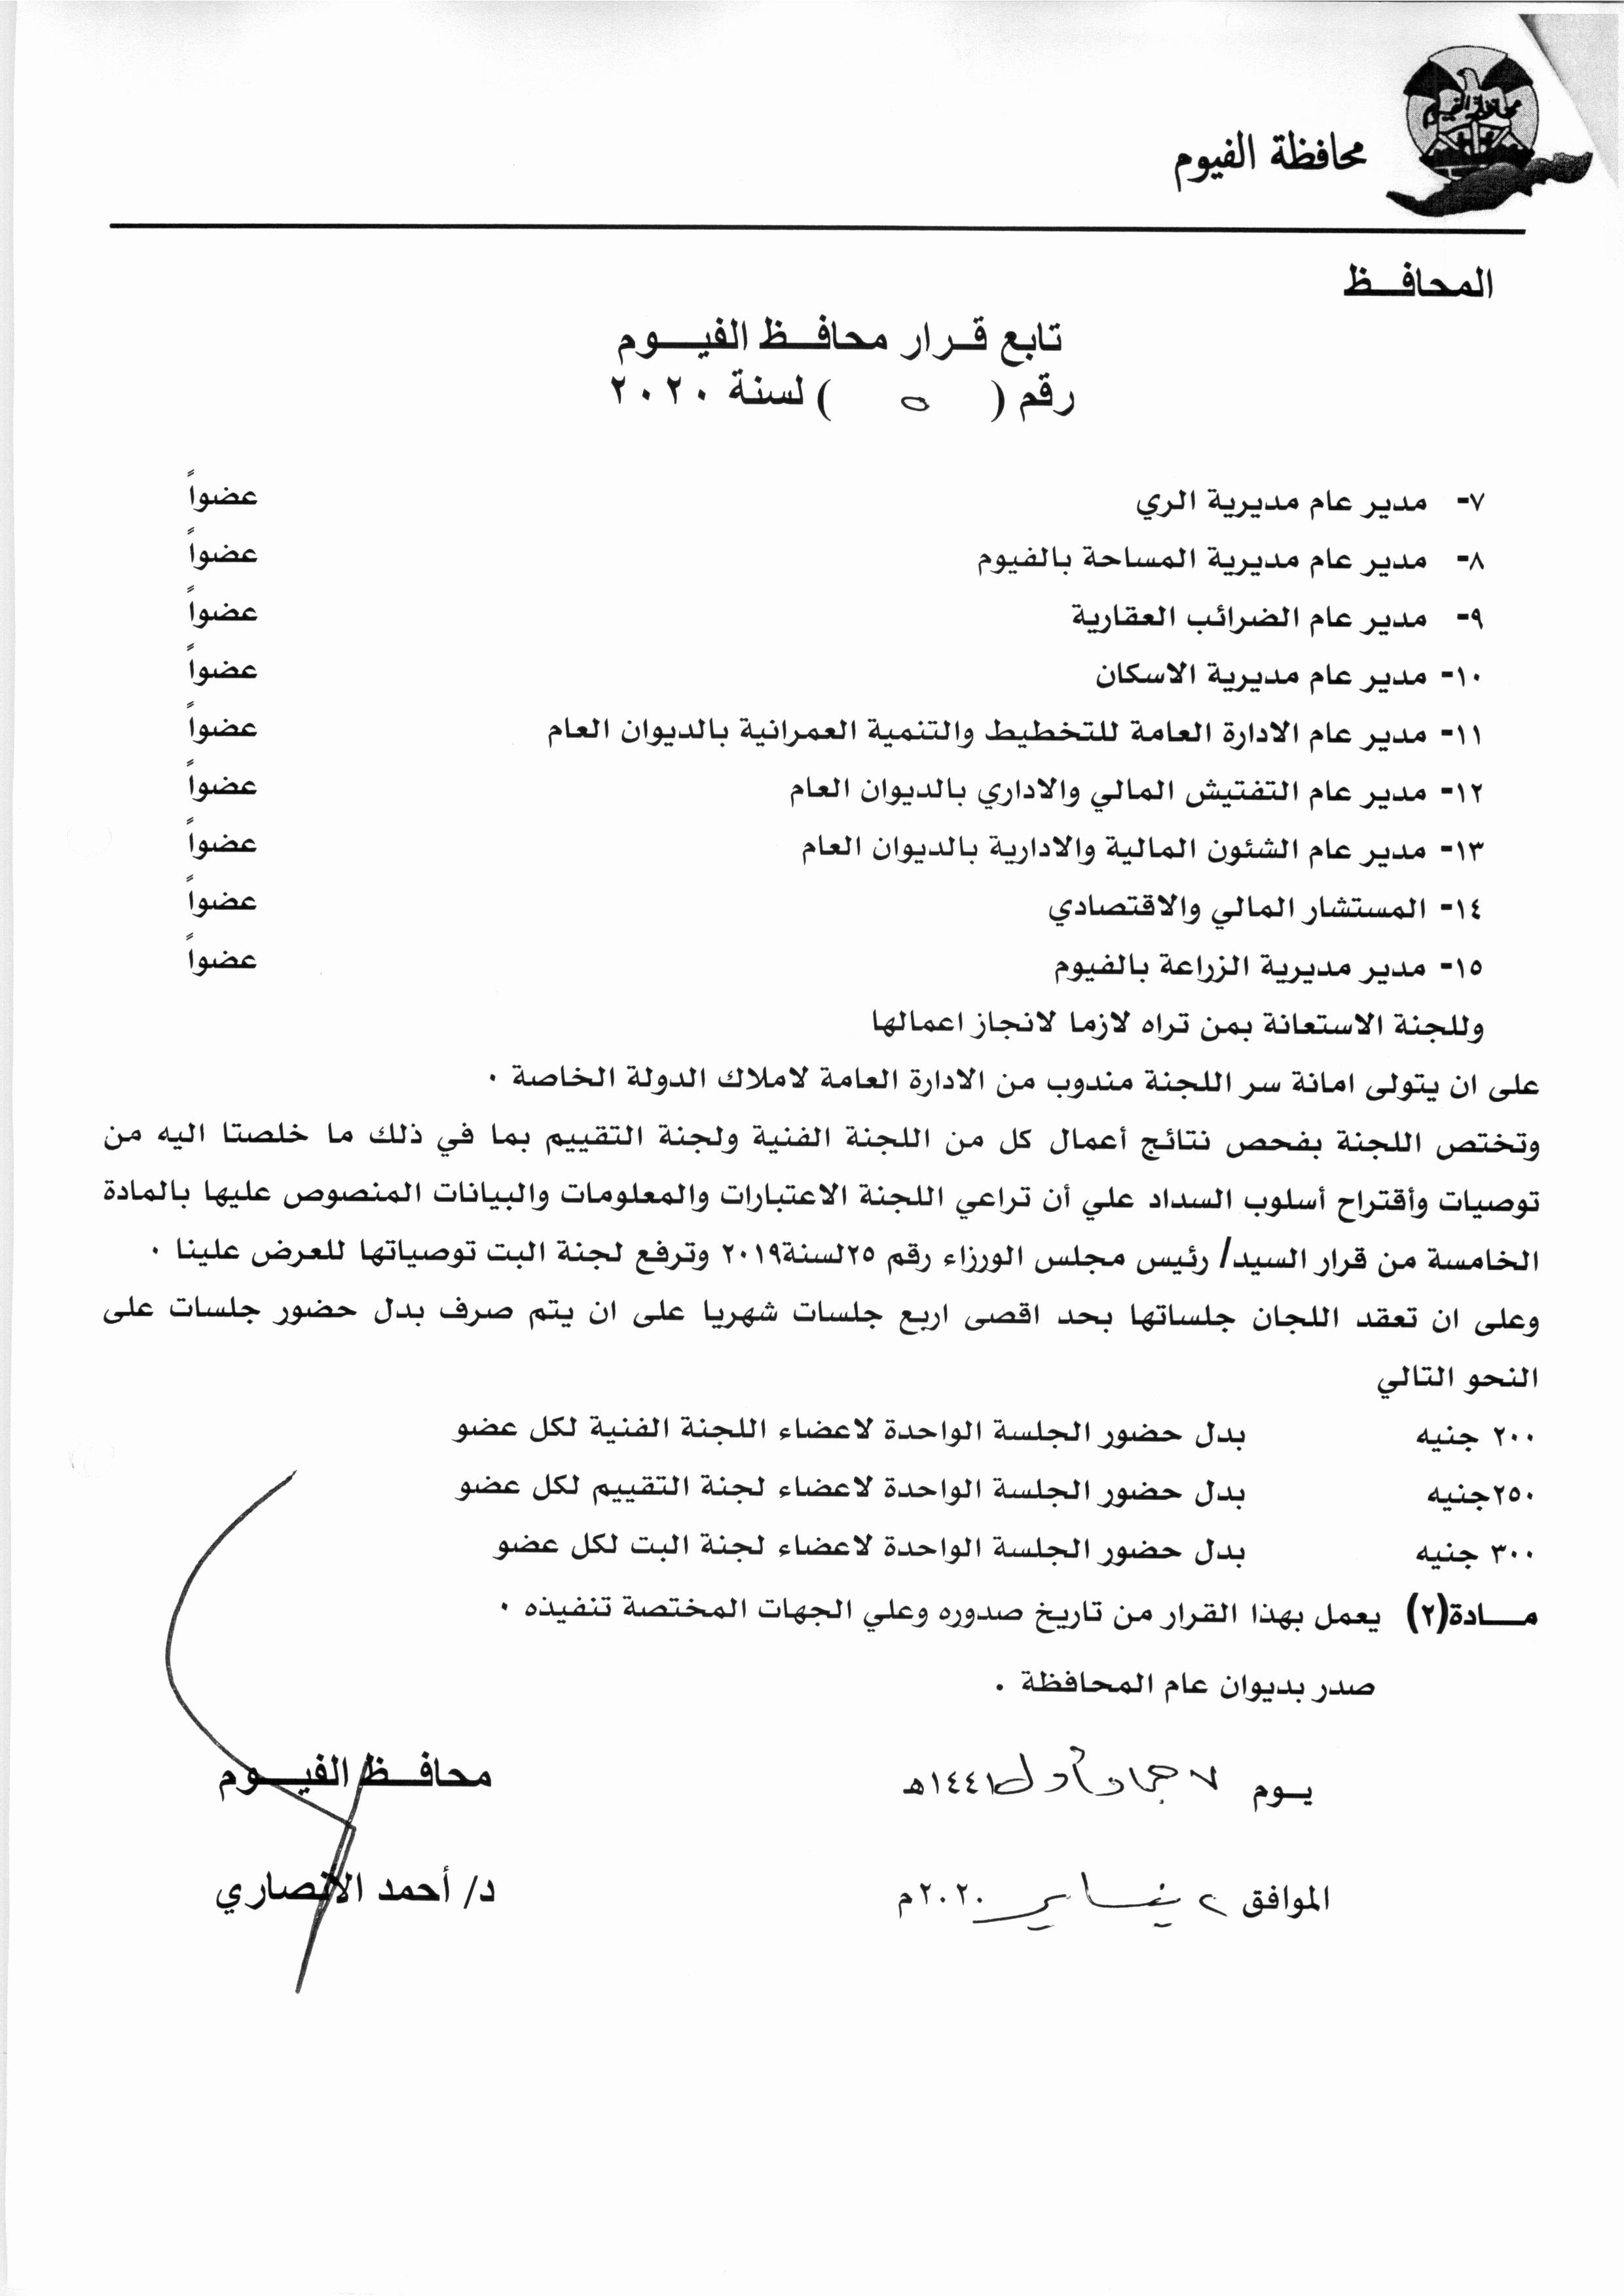 محافظة الفيوم
محافظة الفيوم
المحافـــظ
تابع قـرار محافـظ الفيـــوم
رقم ( ٥ ) لسنة ٢٠٢٠
٧- مدير عام مديرية الري عضواً
٨- مدير عام مديرية المساحة بالفيوم عضواً
٩- مدير عام الضرائب العقارية عضواً
١٠- مدير عام مديرية الاسكان عضواً
١١- مدير عام الادارة العامة للتخطيط والتنمية العمرانية بالديوان العام عضواً
١٢- مدير عام التفتيش المالي والاداري بالديوان العام عضواً
١٣- مدير عام الشئون المالية والادارية بالديوان العام عضواً
١٤- المستشار المالي والاقتصادي عضواً
١٥- مدير مديرية الزراعة بالفيوم عضواً
وللجنة الاستعانة بمن تراه لازما لانجاز اعمالها
على ان يتولى امانة سر اللجنة مندوب من الادارة العامة لاملاك الدولة الخاصة ٠
وتختص اللجنة بفحص نتائج أعمال كل من اللجنة الفنية ولجنة التقييم بما في ذلك ما خلصتا اليه من
توصيات وأقتراح أسلوب السداد علي أن تراعي اللجنة الاعتبارات والمعلومات والبيانات المنصوص عليها بالمادة
الخامسة من قرار السيد/ رئيس مجلس الورزاء رقم ٢٥لسنة٢٠١٩ وترفع لجنة البت توصياتها للعرض علينا ٠
وعلى ان تعقد اللجان جلساتها بحد اقصى اربع جلسات شهريا على ان يتم صرف بدل حضور جلسات على
النحو التالي
٢٠٠ جنيه بدل حضور الجلسة الواحدة لاعضاء اللجنة الفنية لكل عضو
٢٥٠جنيه بدل حضور الجلسة الواحدة لاعضاء لجنة التقييم لكل عضو
٣٠٠ جنيه بدل حضور الجلسة الواحدة لاعضاء لجنة البت لكل عضو
مـــادة(٢) يعمل بهذا القرار من تاريخ صدوره وعلي الجهات المختصة تنفيذه ٠
صدر بديوان عام المحافظة .
يـوم ٧ جماد أول ١٤٤١هـ
محافـــظ الفيـــوم
الموافق ٢ يناير ٢٠٢٠م
د/ أحمد الانصاري